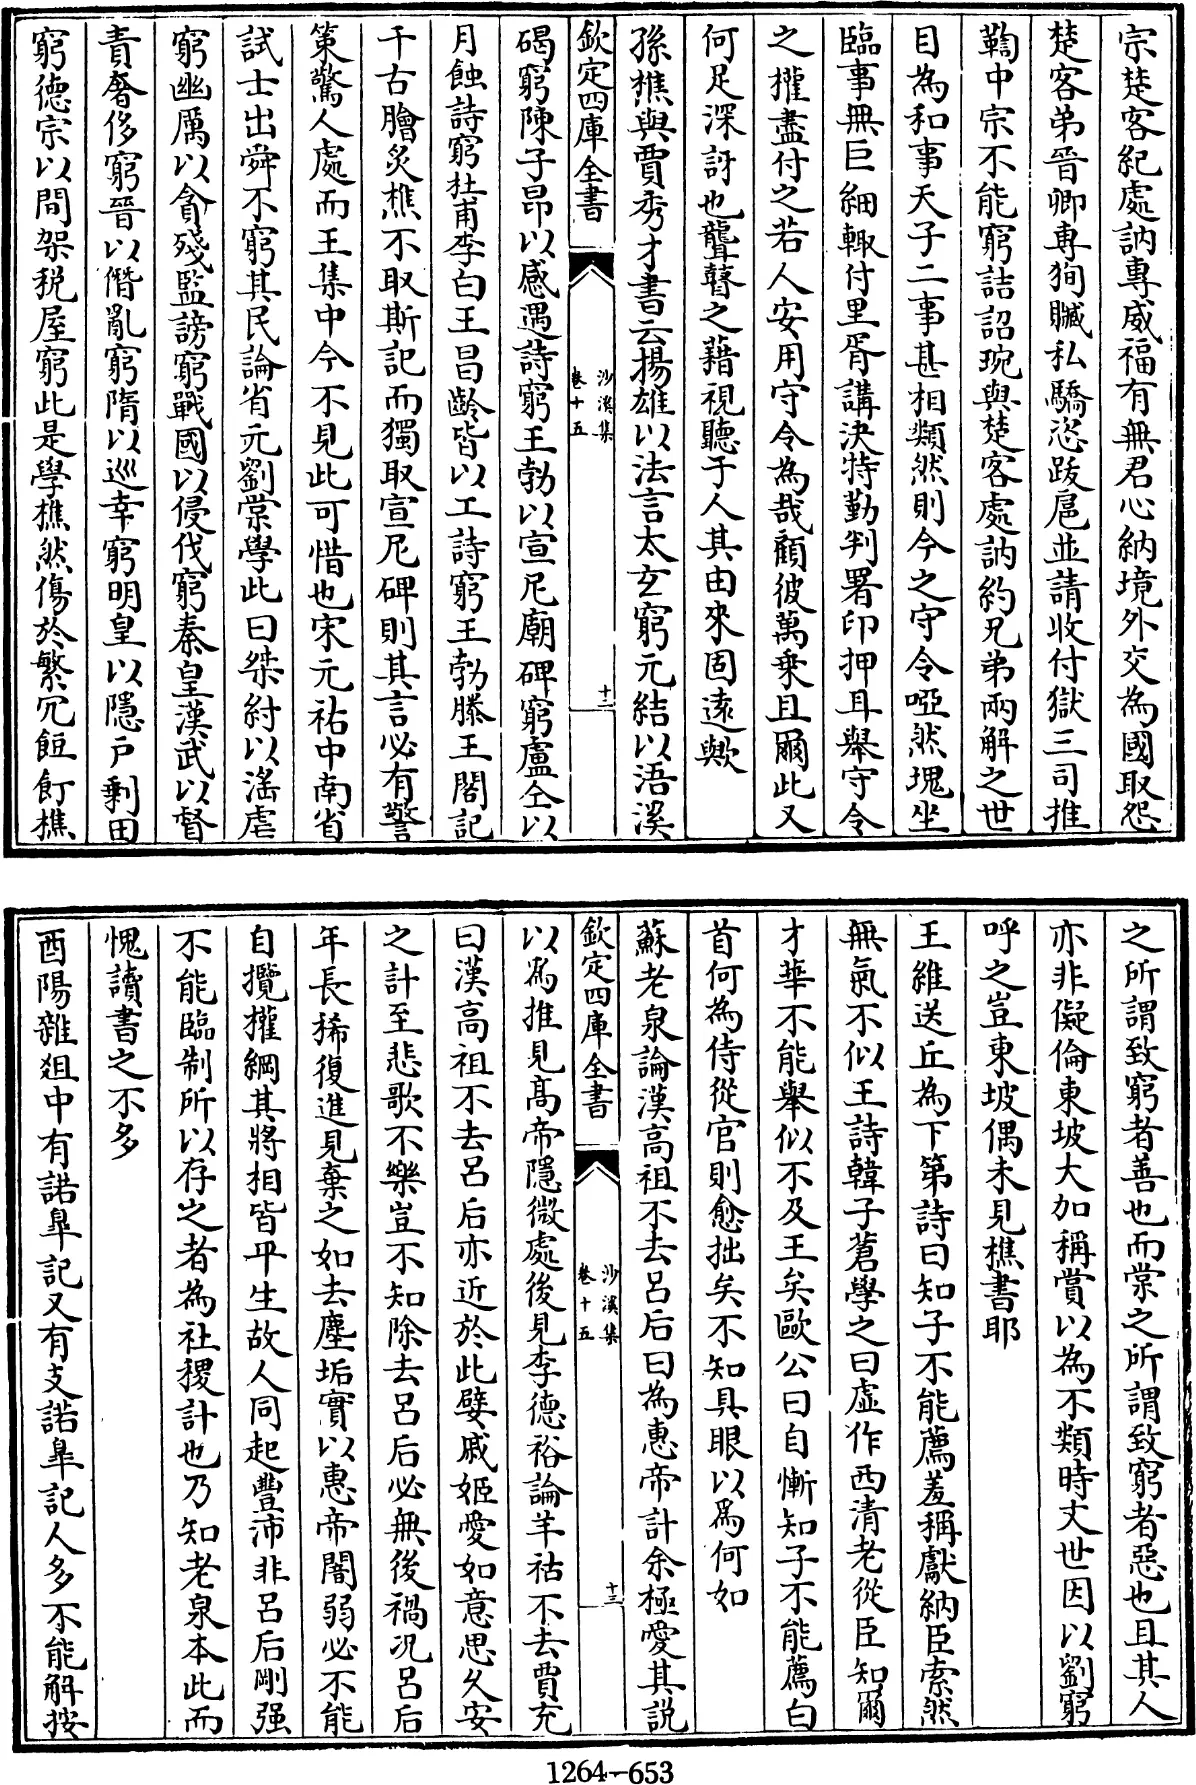 宗楚客紀處訥専威福有無君心納境外交為國取怨
楚客弟晉卿專狥贓私驕恣跋扈並請收付獄三司推
鞫中宗不能窮詰詔琬與楚客處訥約兄弟兩解之世
目為和事天子二事甚相類然則今之守令啞然塊坐
臨事無巨細輙付里胥講決特勤判署印押耳舉守令
之權盡付之若人安用守令為哉顧彼萬乗且爾此又
何足深訝也聾瞽之藉視聽于人其由來固遠歟
孫樵與賈秀才書云揚雄以法言太玄窮元結以浯溪
欽定四庫全書
沙溪集
卷十五
十二
碣窮陳子昂以感遇詩窮王勃以宣尼廟碑窮盧仝以
月蝕詩窮杜甫李白王昌齡皆以工詩窮王勃滕王閣記
千古膾炙樵不取斯記而獨取宣尼碑則其言必有警
策驚人處而王集中今不見此可惜也宋元祐中南省
試士出舜不窮其民論省元劉棠學此曰桀紂以滛虐
窮幽厲以貪殘監謗窮戰國以侵伐窮秦皇漢武以督
責奢侈窮晉以僭亂窮隋以巡幸窮明皇以隱户剩田
窮德宗以間架税屋窮此是學樵然傷於繁冗飣餖樵
之所謂致窮者善也而棠之所謂致窮者惡也且其人
亦非儗倫東坡大加稱賞以為不類時文世因以劉窮
呼之豈東坡偶未見樵書耶
王維送丘為下第詩曰知子不能薦羞稱獻納臣索然
無氣不似王詩韓子蒼學之曰虛作西清老從臣知爾
才華不能舉似不及王矣歐公曰自慚知子不能薦白
首何為侍從官則愈拙矣不知具眼以為何如
蘇老泉論漢高祖不去吕后曰為惠帝計余極愛其説
欽定四庫全書
沙溪集
卷十五
十三
以為推見高帝隱微處後見李德裕論羊祜不去賈充
曰漢高祖不去吕后亦近於此嬖戚姬愛如意思久安
之計至悲歌不樂豈不知除去吕后必無後禍况吕后
年長稀復進見棄之如去塵垢實以惠帝闇弱必不能
自攬權綱其將相皆平生故人同起豐沛非吕后剛强
不能臨制所以存之者為社稷計也乃知老泉本此而
愧讀書之不多
酉陽雜俎中有諾臯記又有支諾臯記人多不能解按
1264-653